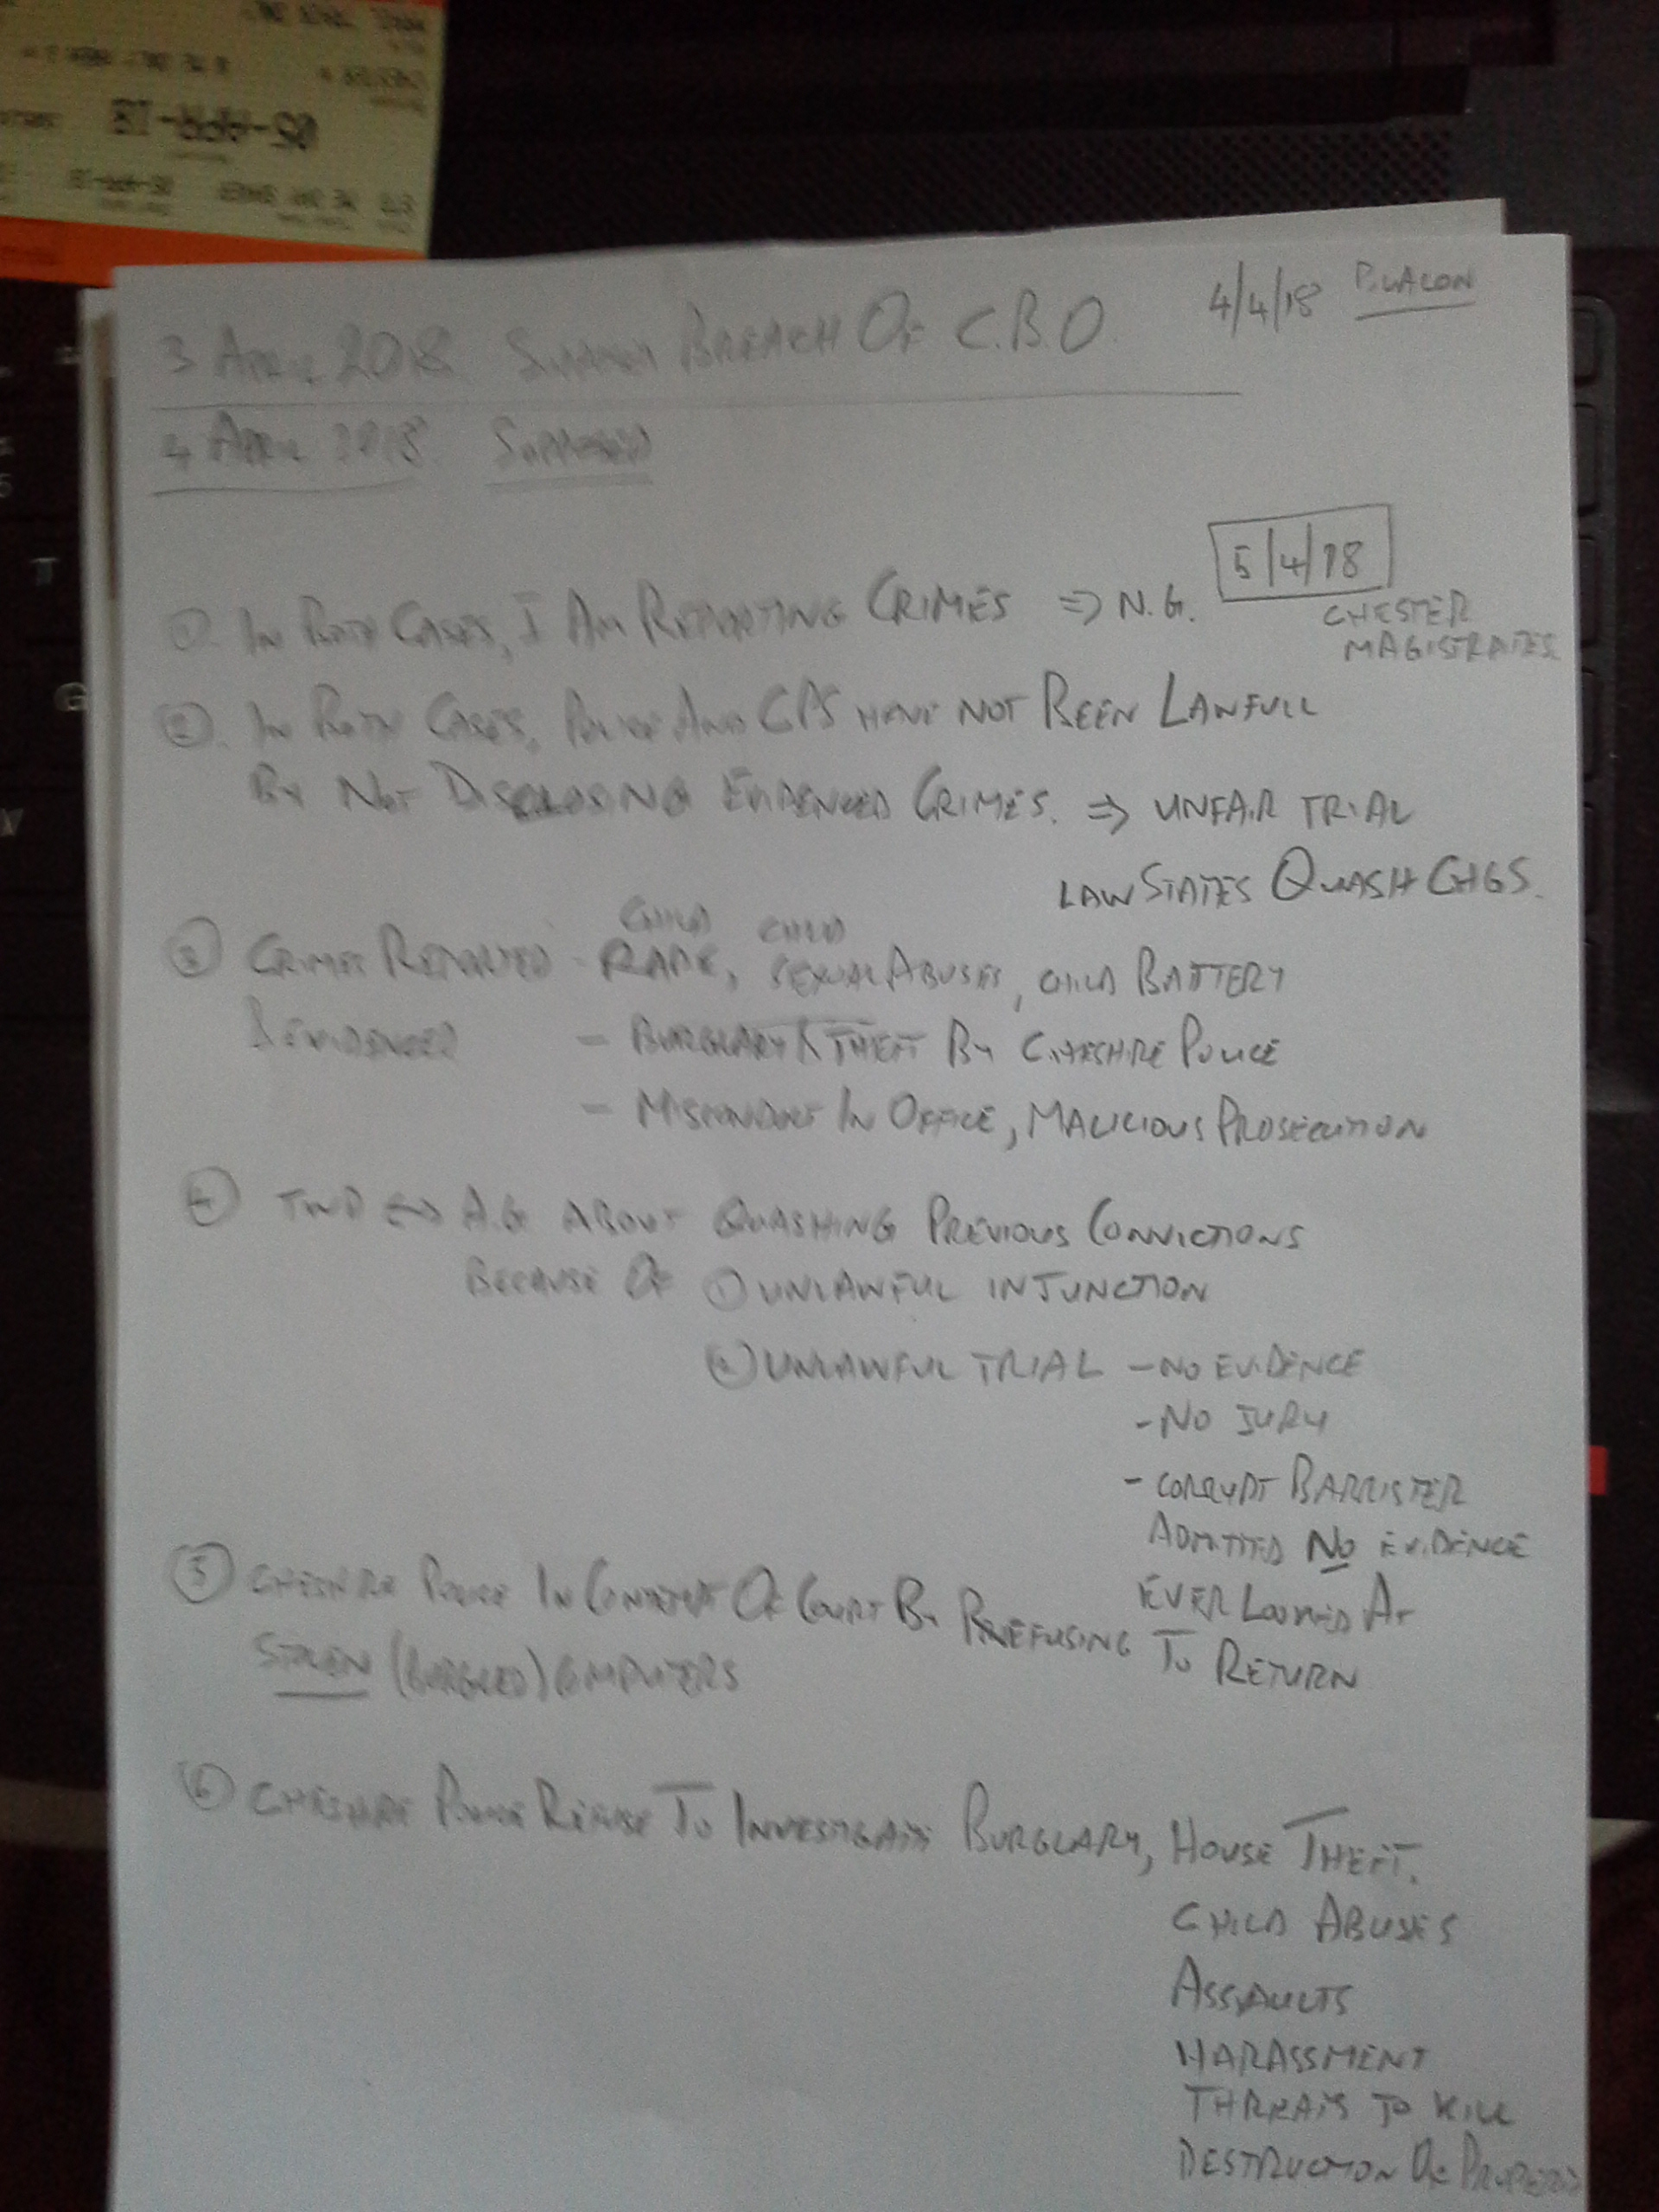 4/4/18 P. LACON
3 APRIL 2018 BREACH OF C.B.O.
4 APRIL 2018 SUPPOSED
5/4/18
CHESTER
MAGISTRATES
① IN BOTH CASES, I AM REPORTING CRIMES ⇒ N.G.
② IN BOTH CASES, POLICE AND CPS HAVE NOT BEEN LAWFULL
BY NOT DISCLOSING EVIDENCED CRIMES. ⇒ UNFAIR TRIAL
LAW STATES QUASH CHGS.
CHILD CHILD
③ CRIMES REPORTED - RAPE, SEXUAL ABUSES, CHILD BATTERY
& EVIDENCED - BURGLARY & THEFT BY CHESHIRE POLICE
- MISCONDUCT IN OFFICE, MALICIOUS PROSECUTION
④ TWO ↔ A.G ABOUT QUASHING PREVIOUS CONVICTIONS
BECAUSE OF ① UNLAWFUL INJUNCTION
② UNLAWFUL TRIAL - NO EVIDENCE
- NO JURY
- CORRUPT BARRISTER
ADMITTED NO EVIDENCE
EVER LOOKED AT
⑤ CHESHIRE POLICE IN CONTEMPT OF COURT BY REFUSING TO RETURN
STOLEN (BURGLED) COMPUTERS
⑥ CHESHIRE POLICE REFUSE TO INVESTIGATE BURGLARY, HOUSE THEFT.
CHILD ABUSES
ASSAULTS
HARASSMENT
THREATS TO KILL
DESTRUCTION OF PROPERTY